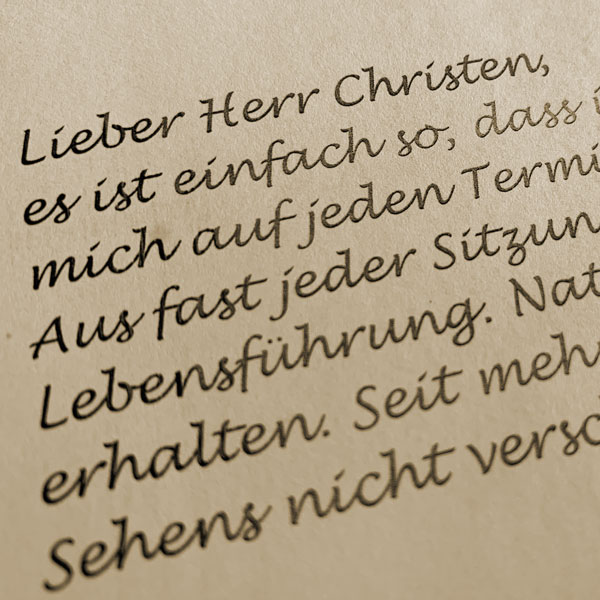 Lieber Herr Christen,
es ist einfach so, dass
mich auf jeden Termi
Aus fast jeder Sitzun
Lebensführung. Nat
erhalten. Seit meh
Sehens nicht versc